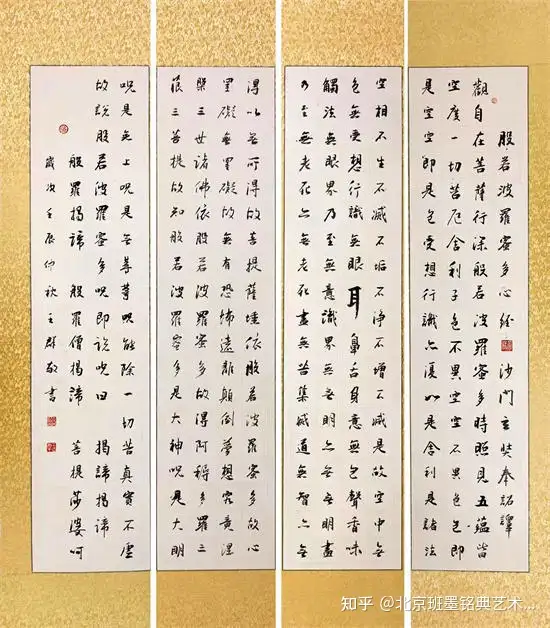 般若波羅蜜多心經 沙門玄奘奉詔譯
觀自在菩薩行深般若波羅蜜多時照見五蘊皆
空度一切苦厄舍利子色不異空空不異色色即
是空空即是色受想行識亦復如是舍利是諸法
空相不生不滅不垢不淨不增不減是故空中無
色無受想行識無眼耳鼻舌身意無色聲香味
觸法無眼界乃至無意識界無無明亦無無明盡
乃至無老死亦無老死盡無苦集滅道無智亦無
得以無所得故菩提薩埵依般若波羅蜜多故心
罣礙無罣礙故無有恐怖遠離顛倒夢想究竟涅
槃三世諸佛依般若波羅蜜多故得阿耨多羅三
藐三菩提故知般若波羅蜜多是大神呪是大明
呪是無上呪是無等等呪能除一切苦真實不虛
故說般若波羅蜜多呪即說呪曰 揭諦揭諦
般羅揭諦 般羅僧揭諦 菩提莎婆呵
歲次壬辰仲秋王群敬書
知乎 @北京班墨铭典艺术...